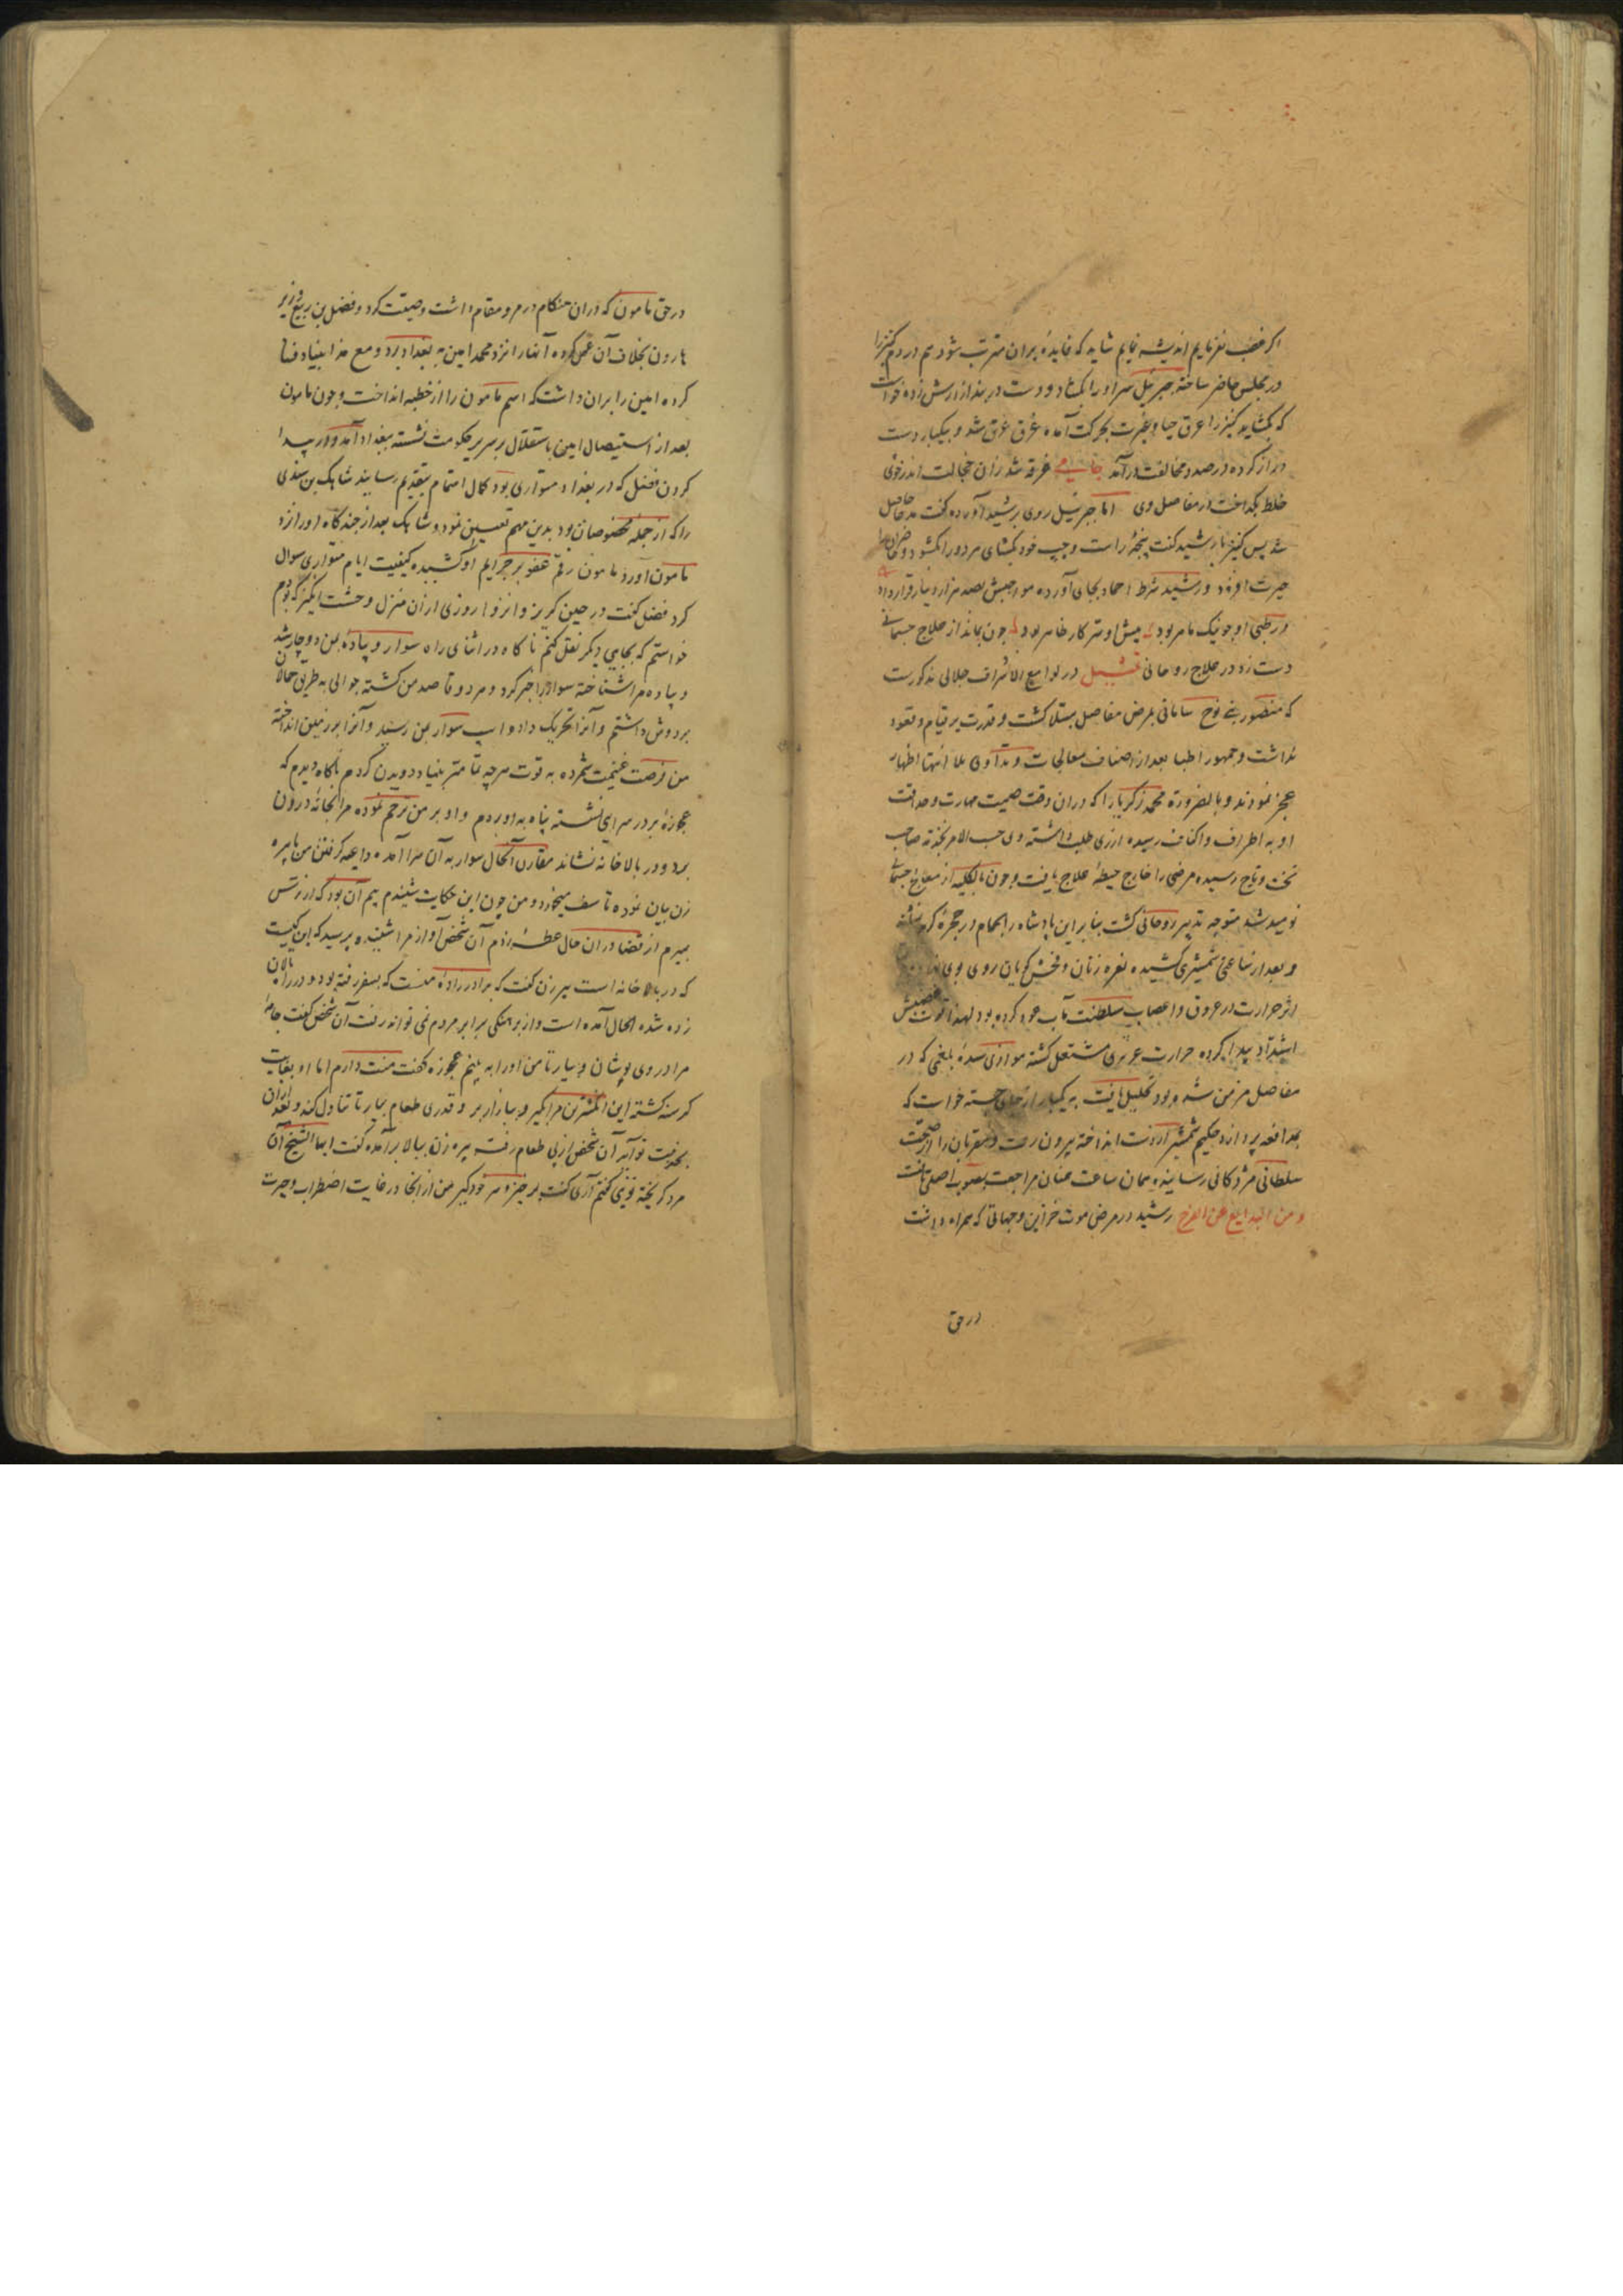 اکر غضب نفرمایم اندیشه نمایم شاید که فایدهٔ بران مترتب شود هم در دم کنیز را
در مجلس حاضر ساخته جبرئیل سر او را بکشاد و دست در بند ازارش زده خواست
که بکشاید کنیز را عرق حیا و غیرت بحرکت آمده غرق عرق شد و بیکبار دست
دراز کرده در صدد مخالفت درآمد غرقه شد زان خجالت اندر خوی
خلط بکداخت از مفاصل وی اما جبرئیل روی برشید آورده گفت مدعا حاصل
شد پس کنیز را رشید گفت پنجهٔ راست و چپ خود بکشای هر دو را بکشود و حاضران را
حیرت افزود و رشید شرط احماد بجای آورده مواجبش بصد هزار دینار قرار داد
در طبی او جو نیک ماهر بود پیش او سر کار ظاهر بود چون بماند از علاج جسمانی
دست زد در علاج روحانی تمثیل در لوامع الاشراق جلالی مذکورست
که منصور بن نوح سامانی بمرض مفاصل مبتلا کشت و قدرت بر قیام و قعود
نداشت و جمهور اطبا بعد از اصناف معالجات و تداوی بلا انتها اظهار
عجز نمودند و بالضروره محمد زکریا را که دران وقت صیت مهارت و حداقت
او به اطراف و اکناف رسیده از ری طلب داشته وی حسب الامر بخدمه صاحب
تخت و تاج رسیده مرض را خارج حیطهٔ علاج یافت و چون بالکلیه از معالجه جسمانی
نومید شد متوجه تدبیر روحانی کشت بنابر این پادشاه را بحمام در حجرهٔ کرم نشانده
و بعد از ساعتی شمشیری کشیده نعره زنان و فحش کویان روی بوی
اثر حرارت در عروق و اعصاب سلطنت مآب عود کرده بود لهذا قوت غضبیش
اشتداد پیدا کرده حرارت غریزی مشتعل کشته موازی سدهٔ بلغمی که در
مفاصل مزمن شده بود تحلیل یافت به یکبار از جای جسته خواست که
بمدافعه پردازد حکیم شمشیر از دست انداخته بیرون رفت و مقربان را از صحت
سلطانی مژدکانی رسانیده همان ساعت عنان مراجعت بصوب اصلی تافت
و من البدایع رشید در مرض موت خزاین و جهاتی که همراه داشت
در حق
در حق مامون که دران هنکام در مرو مقام داشت وصیت کرد و فضل بن ربیع وزیر
هارون بخلاف آن عمل کرده آنها را نزد محمد امین به بغداد برد و مع هذا بنیاد فساد
کرده امین را بران داشت که اسم مامون را از خطبه انداخت و چون مامون
بعد از استیصال امین باستقلال بر سریر حکومت نشسته ببغداد آمد و در پیدا
کردن فضل که در بغداد متواری بود کمال اهتمام بتقدیم رسانید شاهک بن سندی
را که از جمله مخصوصان بود بدین مهم تعیین نمود و شاهک بعد از چند کاه او را نزد
مامون آورد مامون رقم عفو بر جرایم او کشیده کیفیت ایام متواری سوال
کرد فضل گفت در حین کریز و انزوا روزی از ان منزل وحشت انکیز که بودم
خواستم که بجایی دیکر نقل کنم ناکاه در اثنای راه سوار و پیادهٔ بمن دوچار شد
و پیاده مرا شناخته سوار را خبر کرد و هر دو قاصد من کشته جوالی به طریق حمالان
بر دوش داشتم و آنرا تحریک داده اسپ سوار بمن رسید و آنرا بر زمین انداخته
من فرصت غنیمت شمرده به قوت هر چه تمامتر بنیاد دویدن کردم ناکاه دیدم که
عجوزهٔ بر در سرایی نشسته پناه به او بردم و او بر من ترحم نموده مرا بخانه درون
برد و در بالا خانه نشاند مقارن آنحال سوار به آن سرا آمده داعیه کرفتن من با پیره
زن بیان نموده تاسف میخورد و من چون این حکایت شنیدم بیم آن بود که از ترس
بمیرم از قضا دران حال عطسه زدم آن شخص آواز مرا شنیده پرسید که این کیست
که در بالا خانه است پیرزن گفت که برادر زادهٔ منست که بسفر رفته بود و در راه
زده شده الحال آمده است و از برهنکی برابر مردم نمی تواند رفت آن شخص گفت جامهٔ
مرا در وی پوشان و بیار تا من او را به بینم عجوزه گفت منت دارم اما او بغایت
کرسنه کشته این انکشترین مرا بگیر و ببازار بر و قدری طعام بیار تا تناول کند و بعد ازان
بخدمت تو آید آن شخص از پی طعام رفت پیره زن ببالا برآمده گفت ایها الشیخ آن
مرد کریخته تویی گفتم آری گفت برخیز و سر خود کیر من از آنجا در غایت اضطراب و حیرت